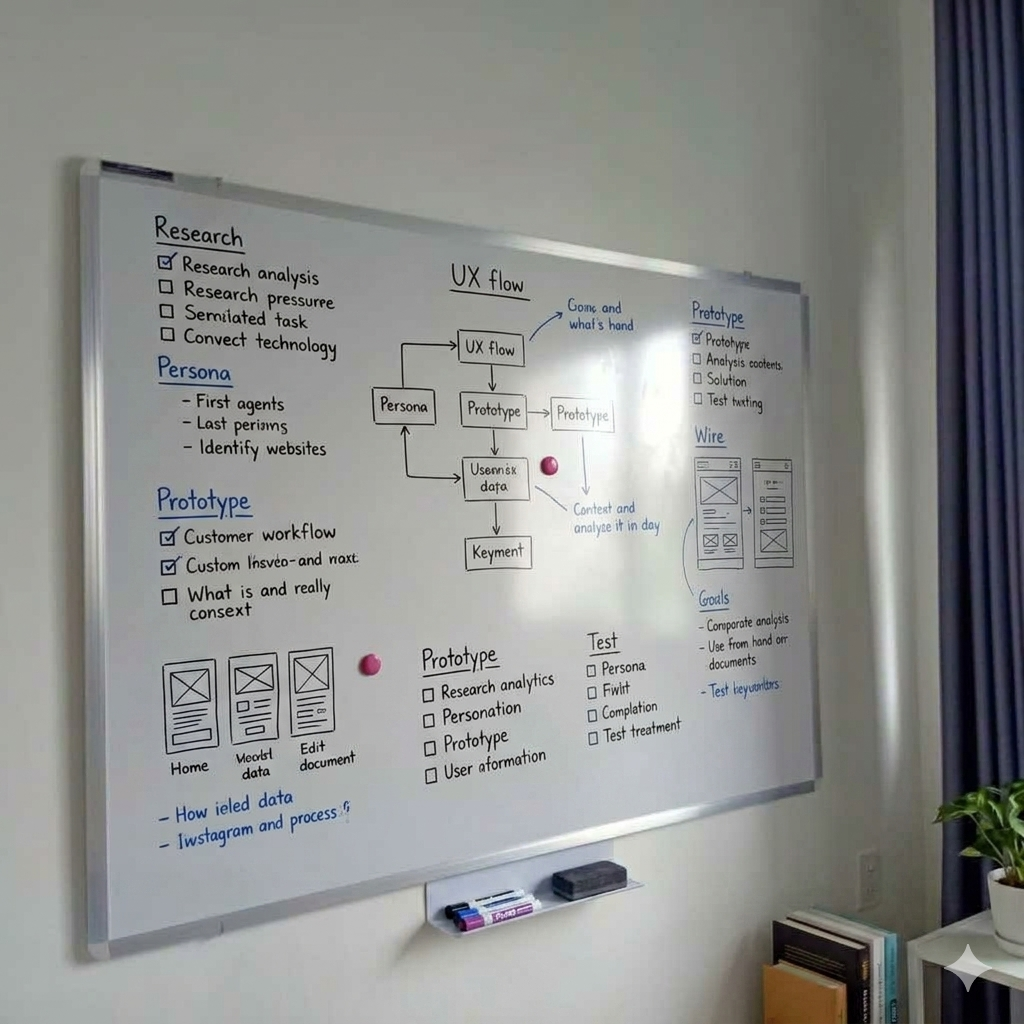 Research
Research analysis
Research pressurre
Semilated task
Convect technology
Persona
- First agents
- Last
- Identify websites
Prototype
Customer workflow
Custom
What is and really
consext
Home
data
Edit
document
- How ieled data
- Iwstagram and process
UX flow
and
what's hand
UX flow
Persona
Prototype
Prototype
data
Keyment
Context and
analyze it in day
Prototype
Research analytics
Personation
Prototype
User aformation
Test
Persona
Complation
Test treatment
Prototype
Prototype
Analysis
Solution
Test
Wire
Goals
- analysis
- Use from hand or
documents
- Test